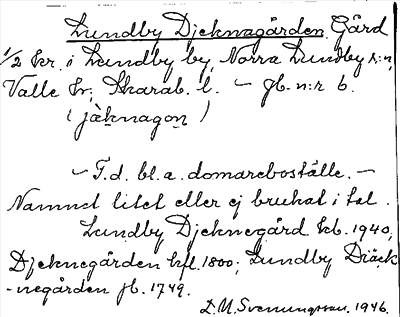 Lundby Djeknagården. Gård
1/2 kr. i Lundby by, Norra Lundby s:n,
Valle hr; Skarab. l. – jb. n:r 6.
(jàknagon)
– T.d. bl.a. domareboställe. –
Namnet litet eller ej brukat i tal.
Lundby Djeknegård kb. 1940;
Djeknegården hfl. 1800; Lundby Diäck
-negården jb. 1749.
D.U. Svenungsson. 1946.